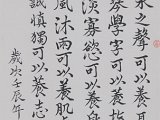 水之聲可以養耳
琴學字可以養指
淡寡慾可以養
風沐雨可以養肌
誠慎獨可以養志
歲次壬辰年